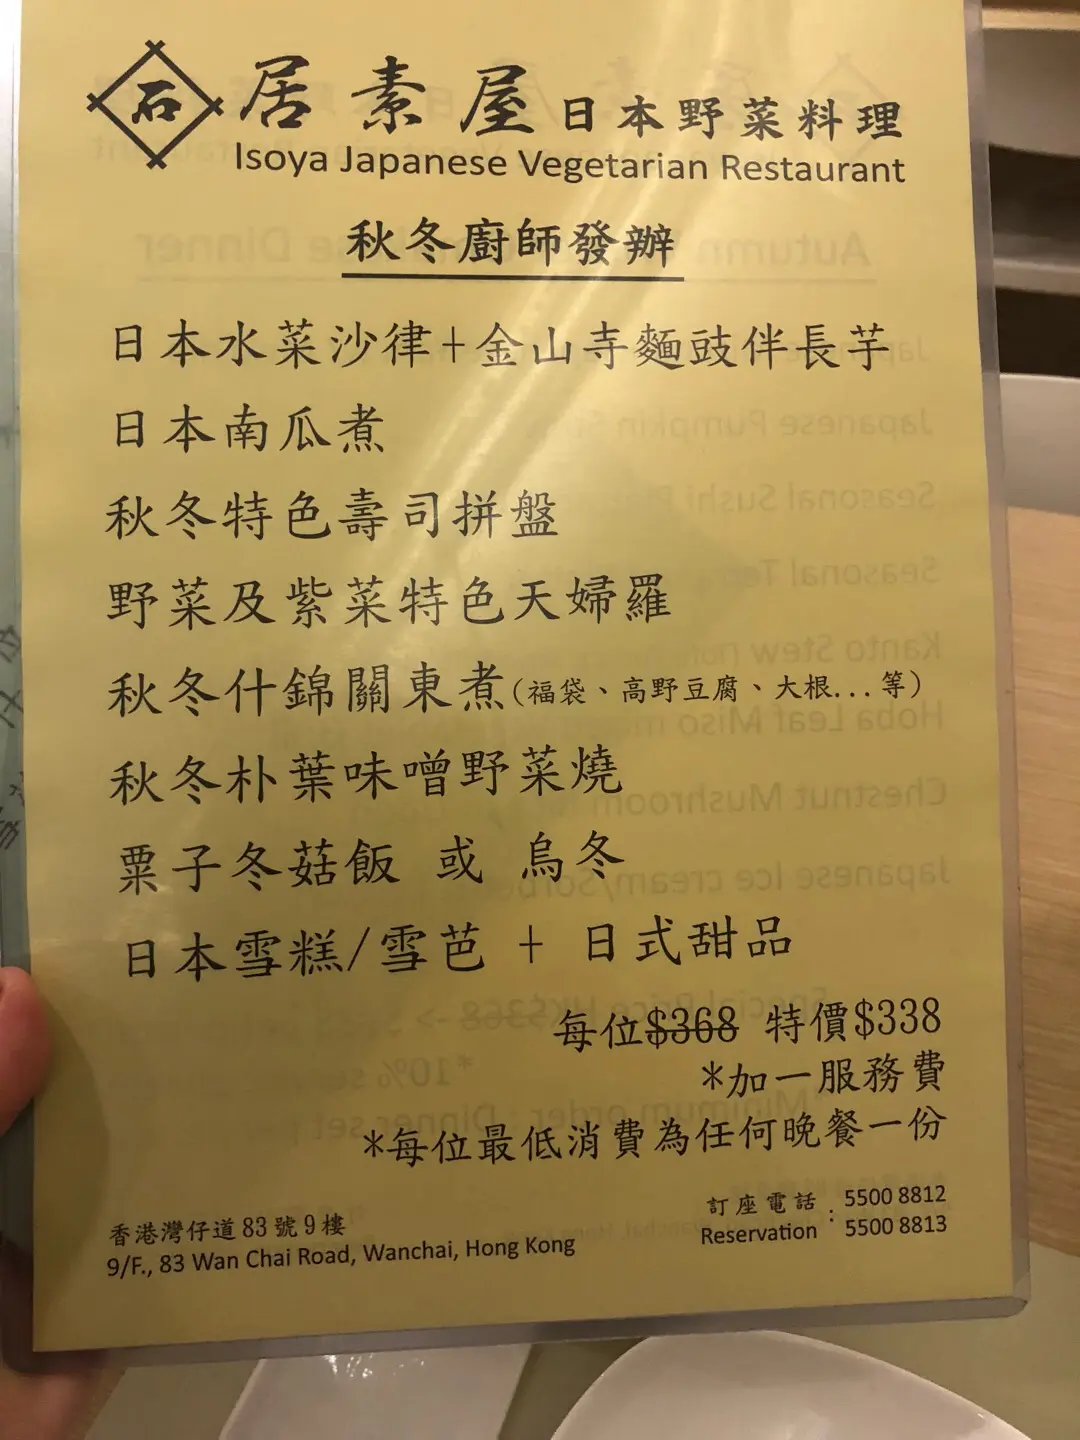 石 居素屋 日本野菜料理
Isoya Japanese Vegetarian Restaurant
秋冬廚師發辦
日本水菜沙律+金山寺麵豉伴長芋
日本南瓜煮
秋冬特色壽司拼盤
野菜及紫菜特色天婦羅
秋冬什錦關東煮(福袋、高野豆腐、大根...等)
秋冬朴葉味噌野菜燒
粟子冬菇飯 或 烏冬
日本雪糕/雪芭 + 日式甜品
每位$368 特價$338
*加一服務費
*每位最低消費為任何晚餐一份
香港灣仔道83號9樓
9/F., 83 Wan Chai Road, Wanchai, Hong Kong
訂座電話 : 5500 8812
Reservation 5500 8813